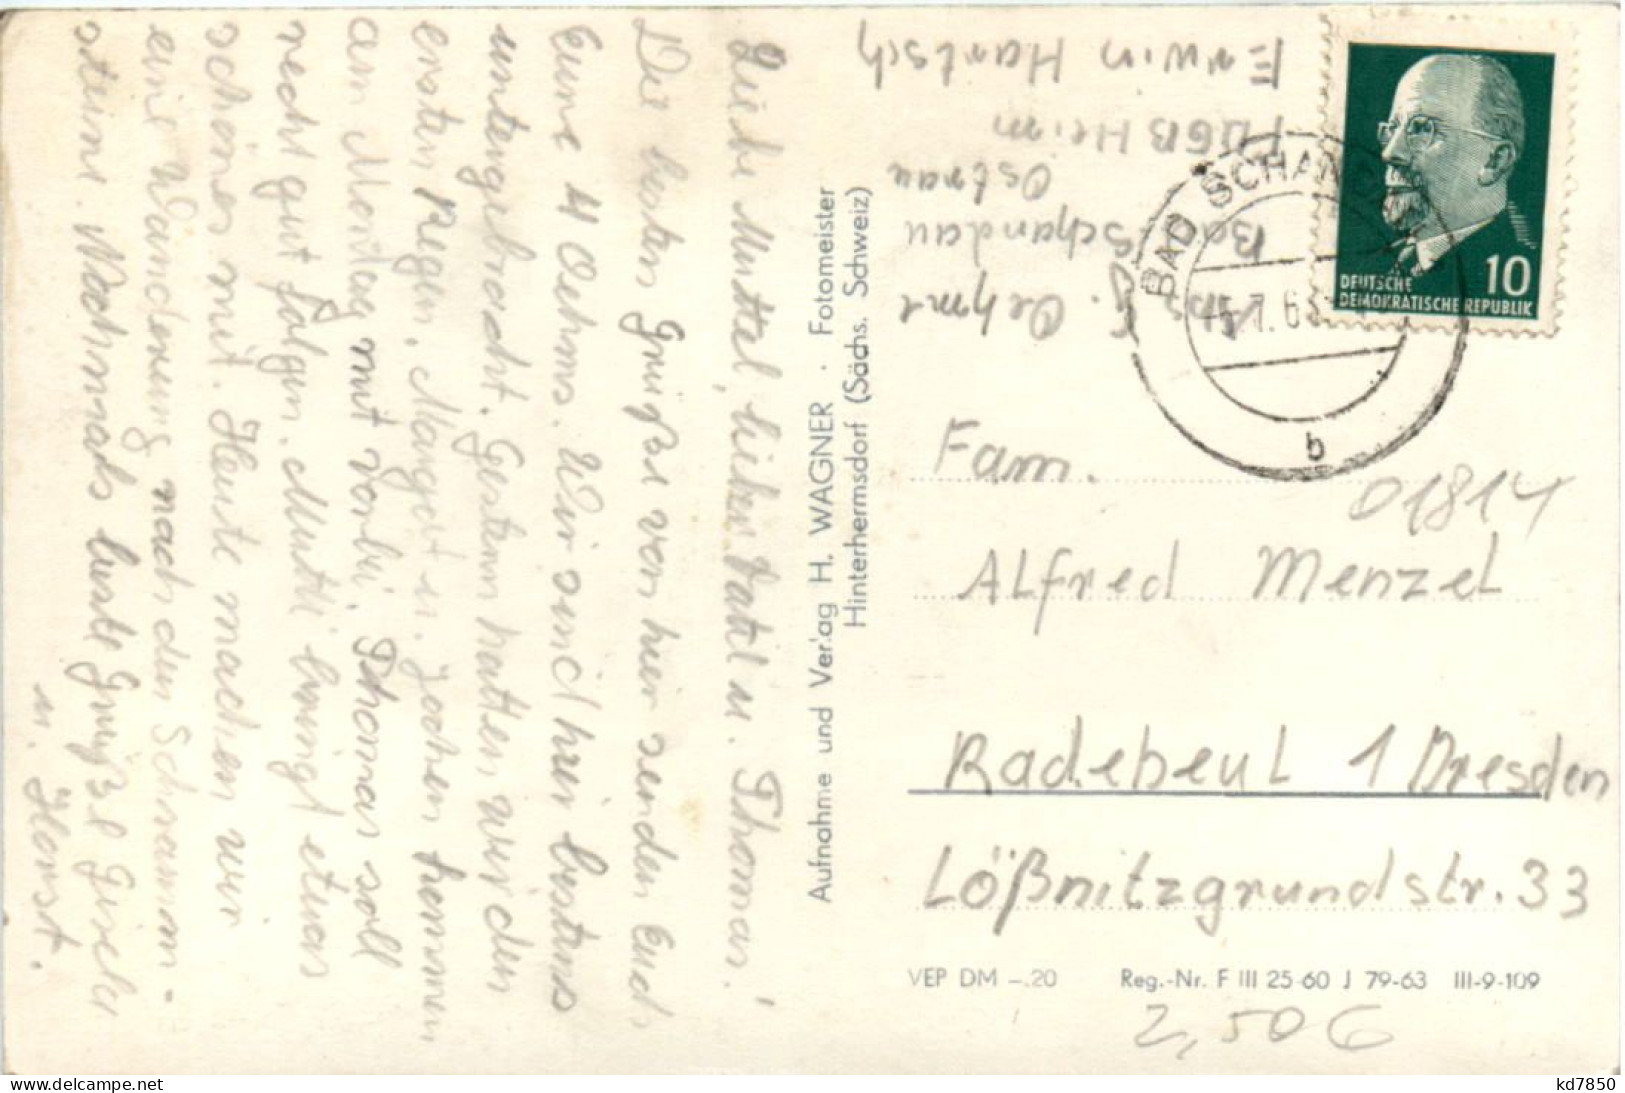 Liebe Muttel, lieber Vatl u. Thomas!
Die besten Grüße von hier senden Euch
Eure 4 Oehms. Wir sind hier bestens
untergebracht. Gestern hatten wir den
ersten Regen. Margot u. Jochen kommen
am Montag mit vorbei. Thomas soll
recht gut folgen. Mutti bringt etwas
schönes mit. Heute machen wir
eine Wanderung nach den Schramm-
steine. Nochmals beste Grüße Gisela
u. Horst.
Erwin Hartsch
FDGB Heim
Ostrau
Bad
Schandau
Oehme
Aufnahme und Verlag H. WAGNER · Fotomeister
Hinterhermsdorf (Sächs. Schweiz)
BAD SCHANDAU
63
b
10
DEUTSCHE
DEMOKRATISCHE REPUBLIK
Fam.
01814
Alfred Menzel
Radebeul 1 Dresden
Lößnitzgrundstr. 33
VEP DM –.20 Reg.-Nr. F III 25-60 J 79-63 III-9-109
2,50 G
www.delcampe.net
kd7850